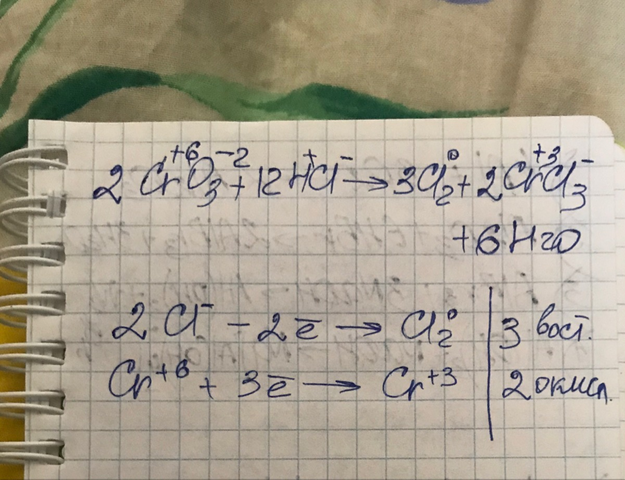 2 Cr⁺⁶O₃⁻² + 12 H⁺Cl⁻ → 3Cl₂⁰ + 2Cr⁺³Cl₃⁻
+ 6 H₂O
2 Cl⁻ – 2ē → Cl₂⁰ | 3 вост.
Cr⁺⁶ + 3ē → Cr⁺³ | 2 окисл.